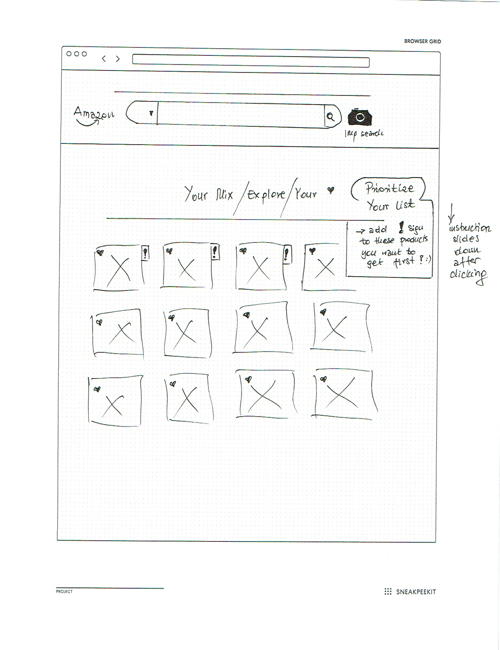 BROWSER GRID
Amazon
Img search
Your Mix / Explore / Your ♥
Prioritize
Your List
→ add ! sign
to these products
you want to
get first! :)
instruction
slides
down
after
clicking
!
!
!
PROJECT
SNEAKPEEKIT